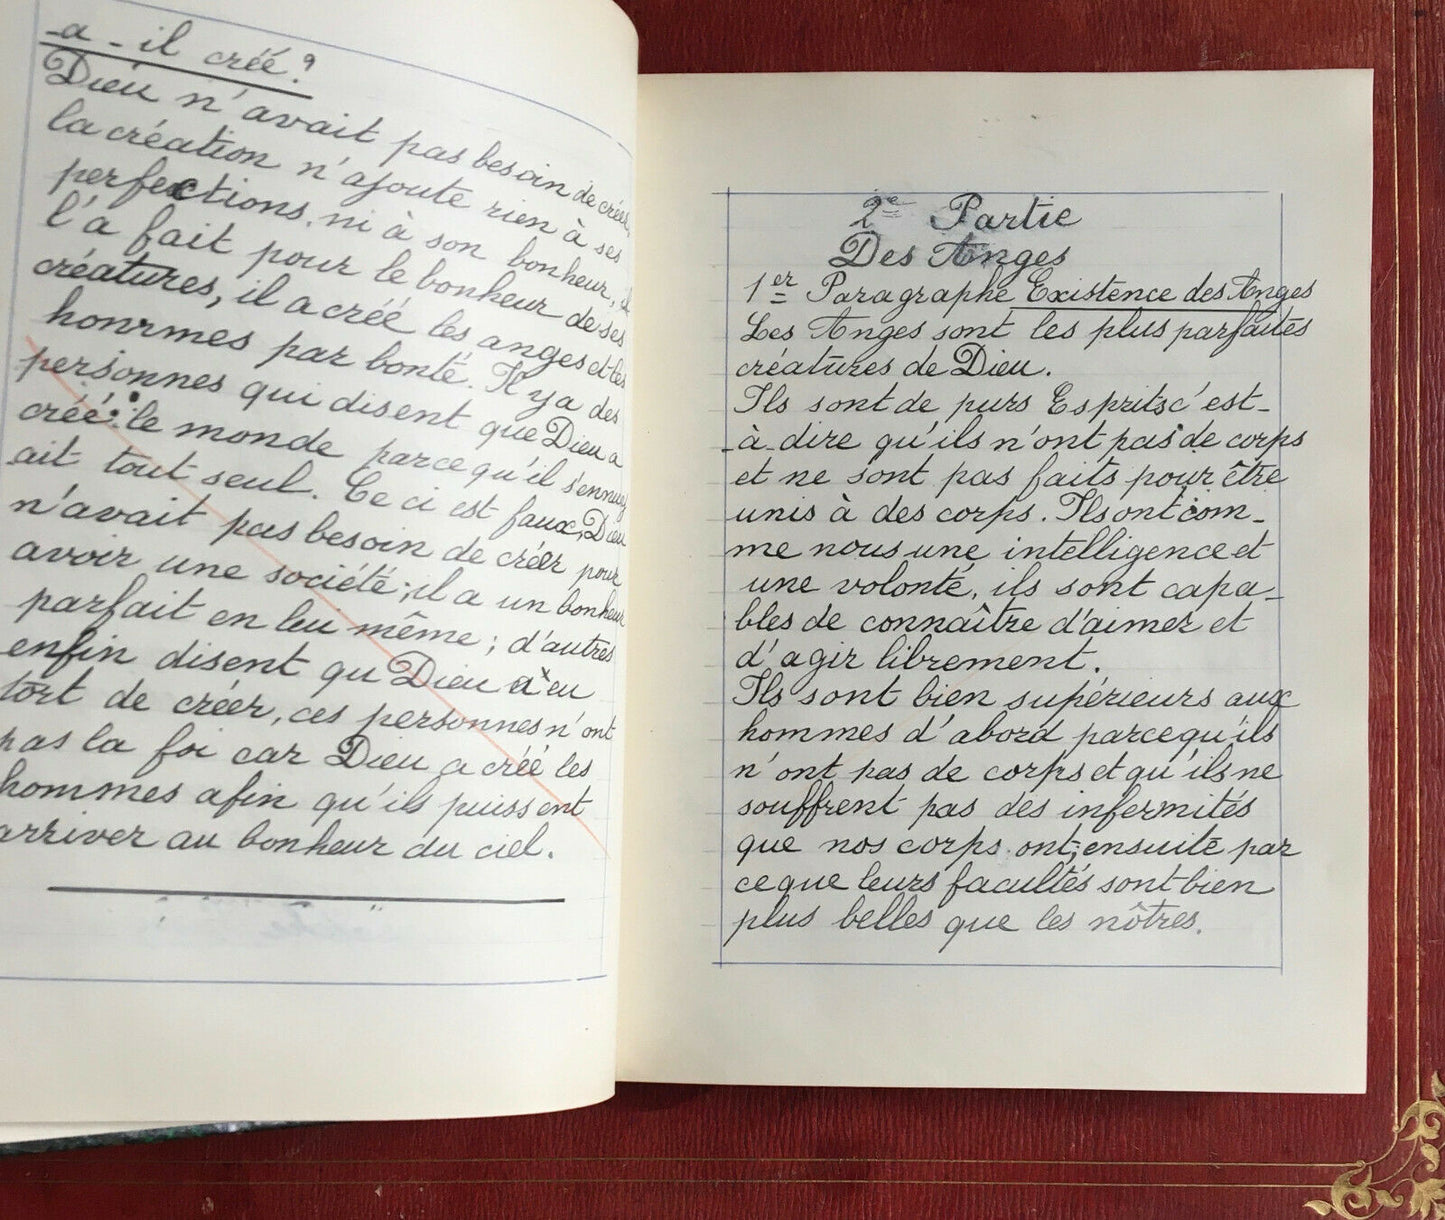 -a-il créé?
Dieu n'avait pas besoin de créer,
la création n'ajoute rien à ses
perfections, ni à son bonheur, il
l'a fait pour le bonheur de ses
créatures, il a créé les anges et les
hommes par bonté. Il y a des
personnes qui disent que Dieu a
créé le monde parce qu'il s'ennuy
-ait tout seul. Ce ci est faux, Dieu
n'avait pas besoin de créer pour
avoir une société; il a un bonheur
parfait en lui même; d'autres
enfin disent qu Dieu a eu
tort de créer, ces personnes n'ont
pas la foi car Dieu a créé les
hommes afin qu'ils puissent
arriver au bonheur du ciel.
2me Partie
Des Anges
1er Paragraphe Existence des Anges
Les Anges sont les plus parfaites
créatures de Dieu.
Ils sont de purs Esprits c'est-
-à-dire qu'ils n'ont pas de corps
et ne sont pas faits pour être
unis à des corps. Ils ont com-
me nous une intelligence et
une volonté, ils sont capa-
bles de connaître d'aimer et
d'agir librement.
Ils sont bien supérieurs aux
hommes d'abord parce qu'ils
n'ont pas de corps et qu'ils ne
souffrent pas des infermités
que nos corps ont; ensuite par
ce que leurs facultés sont bien
plus belles que les nôtres.